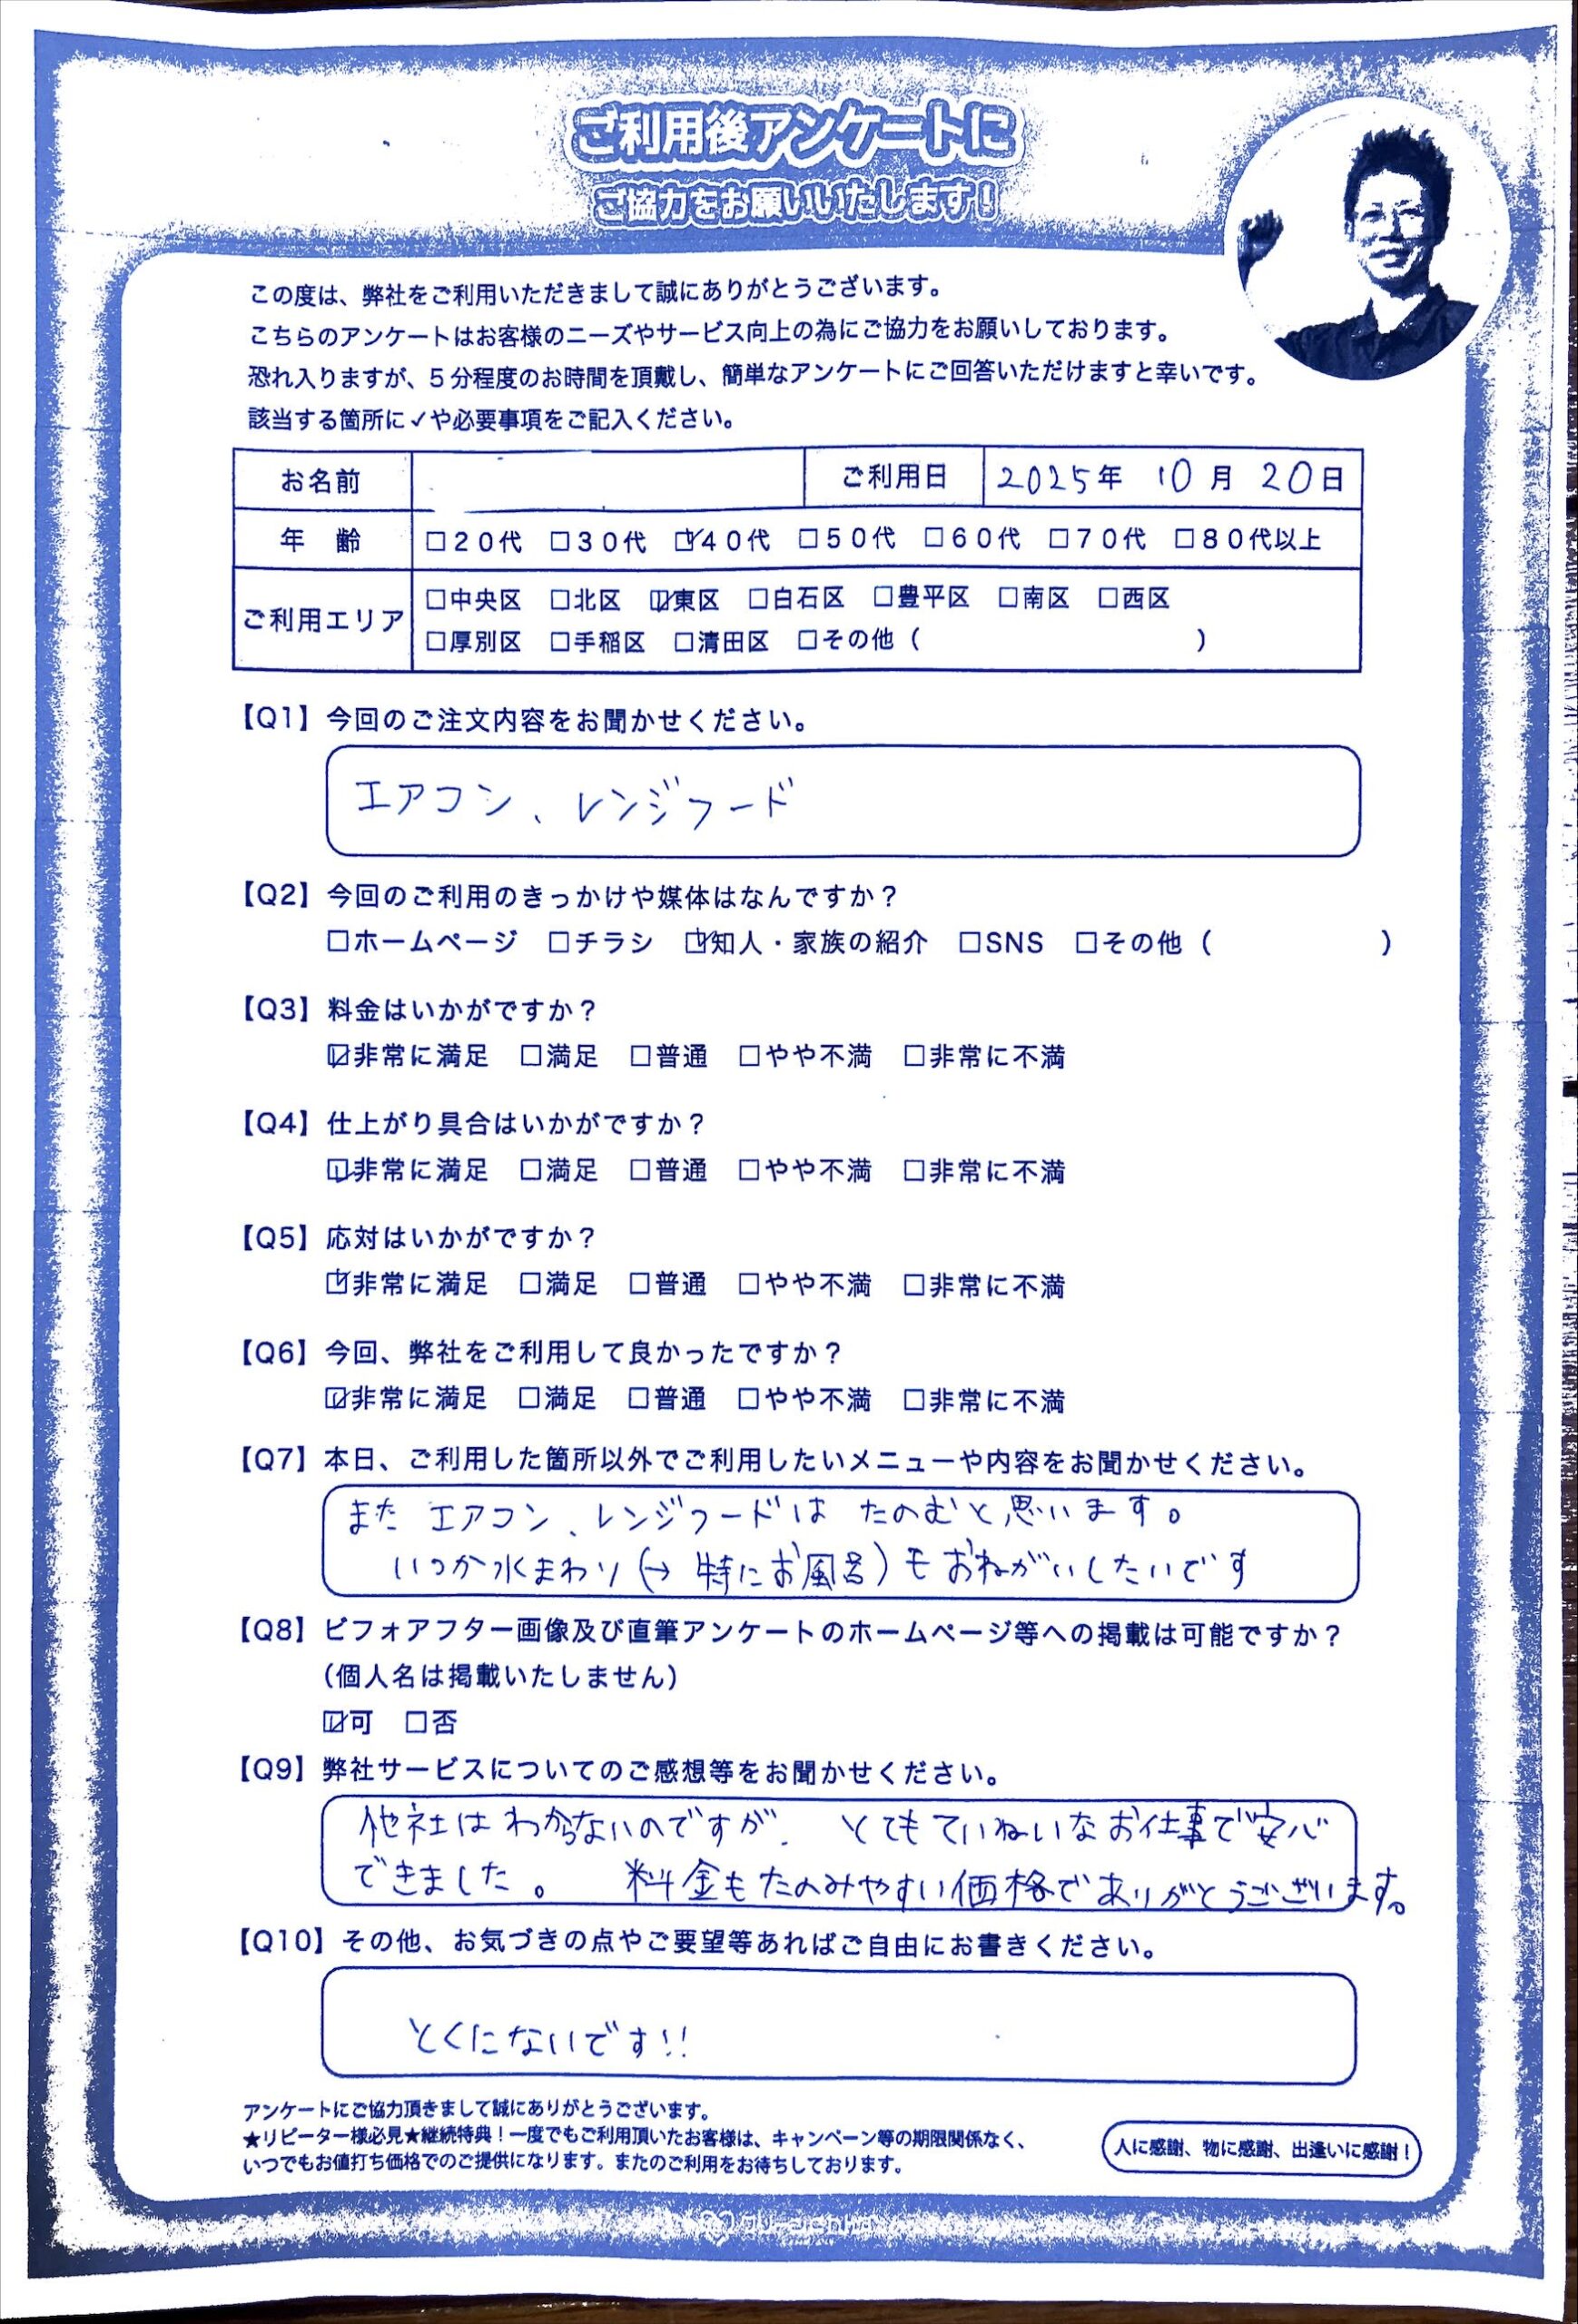 ご利用後アンケートに
ご協力をお願いいたします！
この度は、弊社をご利用いただきまして誠にありがとうございます。
こちらのアンケートはお客様のニーズやサービス向上の為にご協力をお願いしております。
恐れ入りますが、5分程度のお時間を頂戴し、簡単なアンケートにご回答いただけますと幸いです。
該当する箇所に✓や必要事項をご記入ください。
お名前 ご利用日 2025年 10月 20日
年　齢 □20代 □30代 ☑40代 □50代 □60代 □70代 □80代以上
ご利用エリア □中央区 □北区 ☑東区 □白石区 □豊平区 □南区 □西区
□厚別区 □手稲区 □清田区 □その他（　　　　　）
【Q1】今回のご注文内容をお聞かせください。
エアコン、レンジフード
【Q2】今回のご利用のきっかけや媒体はなんですか？
□ホームページ □チラシ ☑知人・家族の紹介 □SNS □その他（　　　　　）
【Q3】料金はいかがですか？
☑非常に満足 □満足 □普通 □やや不満 □非常に不満
【Q4】仕上がり具合はいかがですか？
☑非常に満足 □満足 □普通 □やや不満 □非常に不満
【Q5】応対はいかがですか？
☑非常に満足 □満足 □普通 □やや不満 □非常に不満
【Q6】今回、弊社をご利用して良かったですか？
☑非常に満足 □満足 □普通 □やや不満 □非常に不満
【Q7】本日、ご利用した箇所以外でご利用したいメニューや内容をお聞かせください。
また エアコン、レンジフードは たのむと思います。
いつか水まわり(→ 特にお風呂)もおねがいしたいです
【Q8】ビフォアフター画像及び直筆アンケートのホームページ等への掲載は可能ですか？
（個人名は掲載いたしません）
☑可 □否
【Q9】弊社サービスについてのご感想等をお聞かせください。
他社はわからないのですが、とてもていねいなお仕事で安心
できました。 料金もたのみやすい価格でありがとうございます。
【Q10】その他、お気づきの点やご要望等あればご自由にお書きください。
とくにないです!!
アンケートにご協力頂きまして誠にありがとうございます。
★リピーター様必見★継続特典！一度でもご利用頂いたお客様は、キャンペーン等の期限関係なく、
いつでもお値打ち価格でのご提供になります。またのご利用をお待ちしております。
人に感謝、物に感謝、出逢いに感謝！